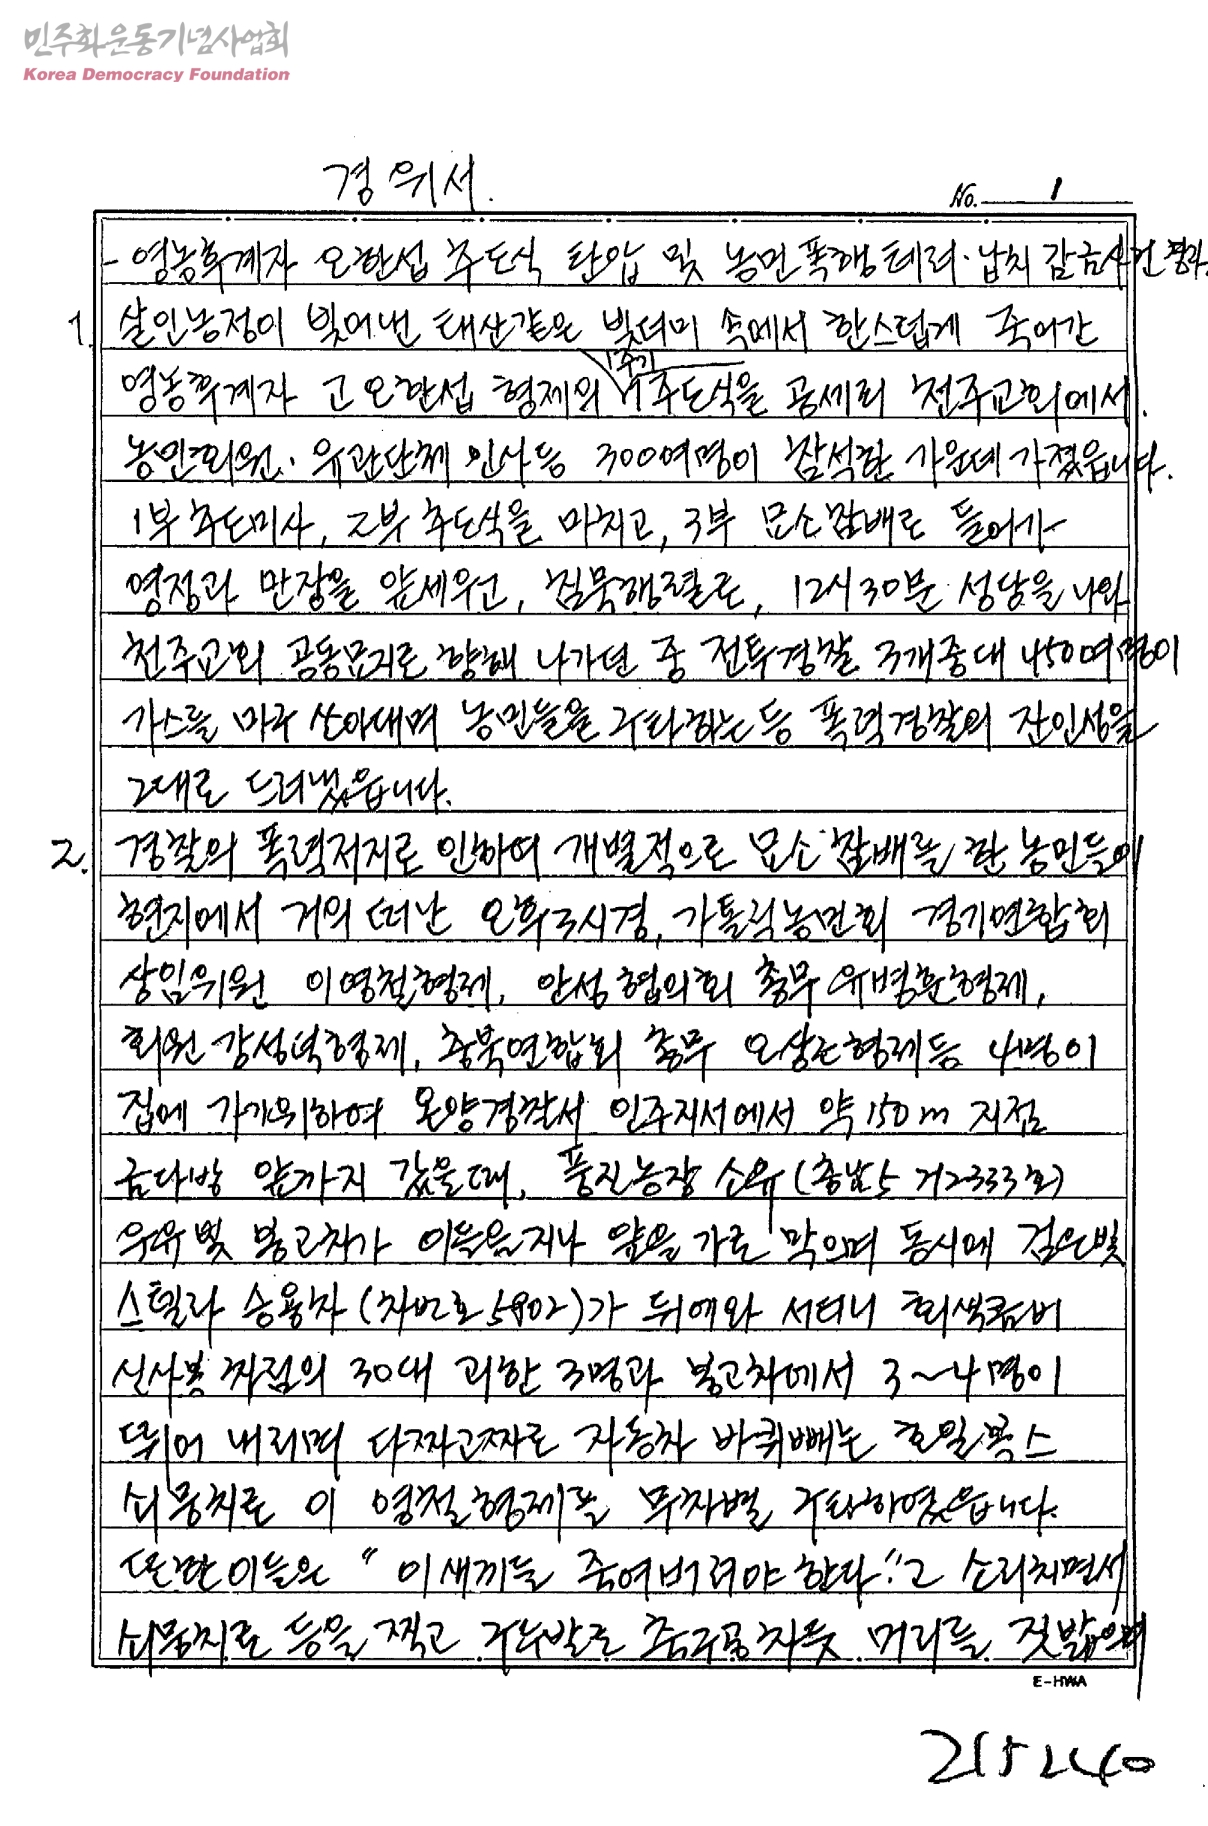 민주화운동기념사업회
Korea Democracy Foundation
경위서.
No. 1
- 영농후계자 오한섭 추도식 탄압 및 농민폭행 테러·납치 감금사건
1. 살인농정이 빚어낸 태산같은 빚더미 속에서 한스럽게 죽어간
1주기
영농후계자 고 오한섭 형제의 추도식을 공세리 천주교회에서.
농민회원, 유관단체 인사등 300여명이 참석한 가운데 가졌읍니다.
1부 추도미사, 2부 추도식을 마치고, 3부 묘소참배로 들어가
영정과 만장을 앞세우고, 침묵행렬로, 12시30분 성당을 나와
천주교회 공동묘지로 향해 나가던 중 전투경찰 3개중대 450여명이
가스를 마구 쏘아대며 농민들을 구타하는등 폭력경찰의 잔인성을
그대로 드러냈읍니다.
2. 경찰의 폭력저지로 인하여 개별적으로 묘소 참배를 한 농민들이
현지에서 거의 떠난 오후3시경, 가톨릭농민회 경기연합회
상임위원 이영철형제, 안성협의회 총무 유병훈형제,
회원 강성덕형제, 충북연합회 총무 오상근형제등 4명이
집에 가기위하여 온양경찰서 인주지서에서 약150m 지점
금다방 앞까지 갔을때, 풍진농장 소유(충남5 거2333호)
우유빛 봉고차가 이들을지나 앞을 가로 막으며 동시에 검은빛
스텔라 승용차(차번호5902)가 뒤에와 서더니 회색콤비
신사복 차림의 30대 괴한 3명과 봉고차에서 3~4명이
뛰어 내리며 다짜고짜로 자동차 바퀴빼는 호일복스
쇠뭉치로 이 영철형제를 무차별 구타하였읍니다.
또한 이들은 "이새끼들 죽여버려야 한다."고 소리치면서
쇠뭉치로 등을 찍고 구두발로 축구공차듯 머리를 짓밟으며
E-HWA
215240